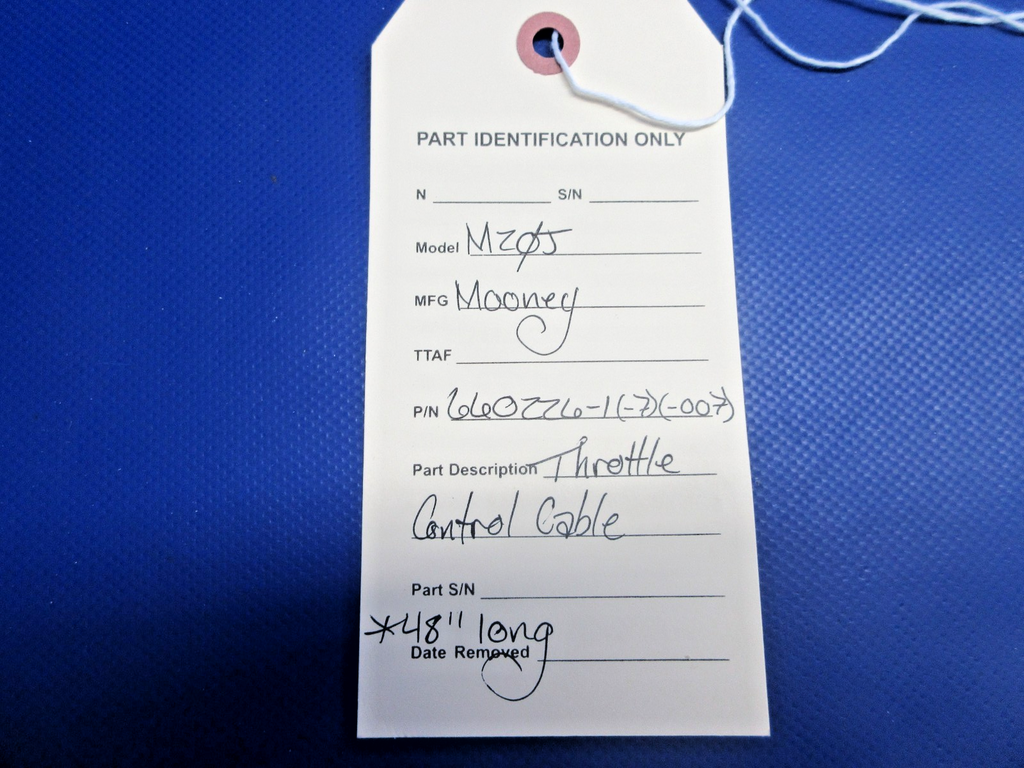 PART IDENTIFICATION ONLY
N S/N
Model M20J
MFG Mooney
TTAF
P/N 660226-1(-7)(-007)
Part Description Throttle
Control Cable
Part S/N
*48" long
Date Removed